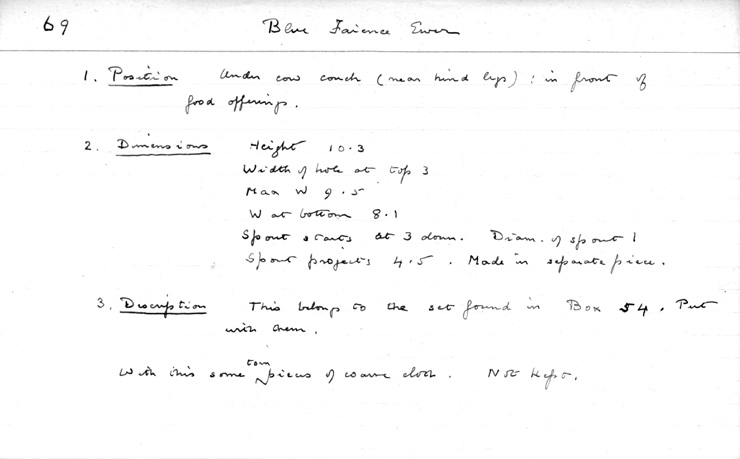 69 Blue Faience Ewer
1. Position Under cow couch (near hind legs) : in front of
food offerings.
2. Dimensions Height 10.3
Width of hole at top 3
Max W 9.5
W at bottom 8.1
Spout starts at 3 down. Diam. of spout 1
Spout projects 4.5. Made in separate piece.
3. Description This belongs to the set found in Box 54. Put
with them.
With this some torn pieces of coarse cloth. Not kept.